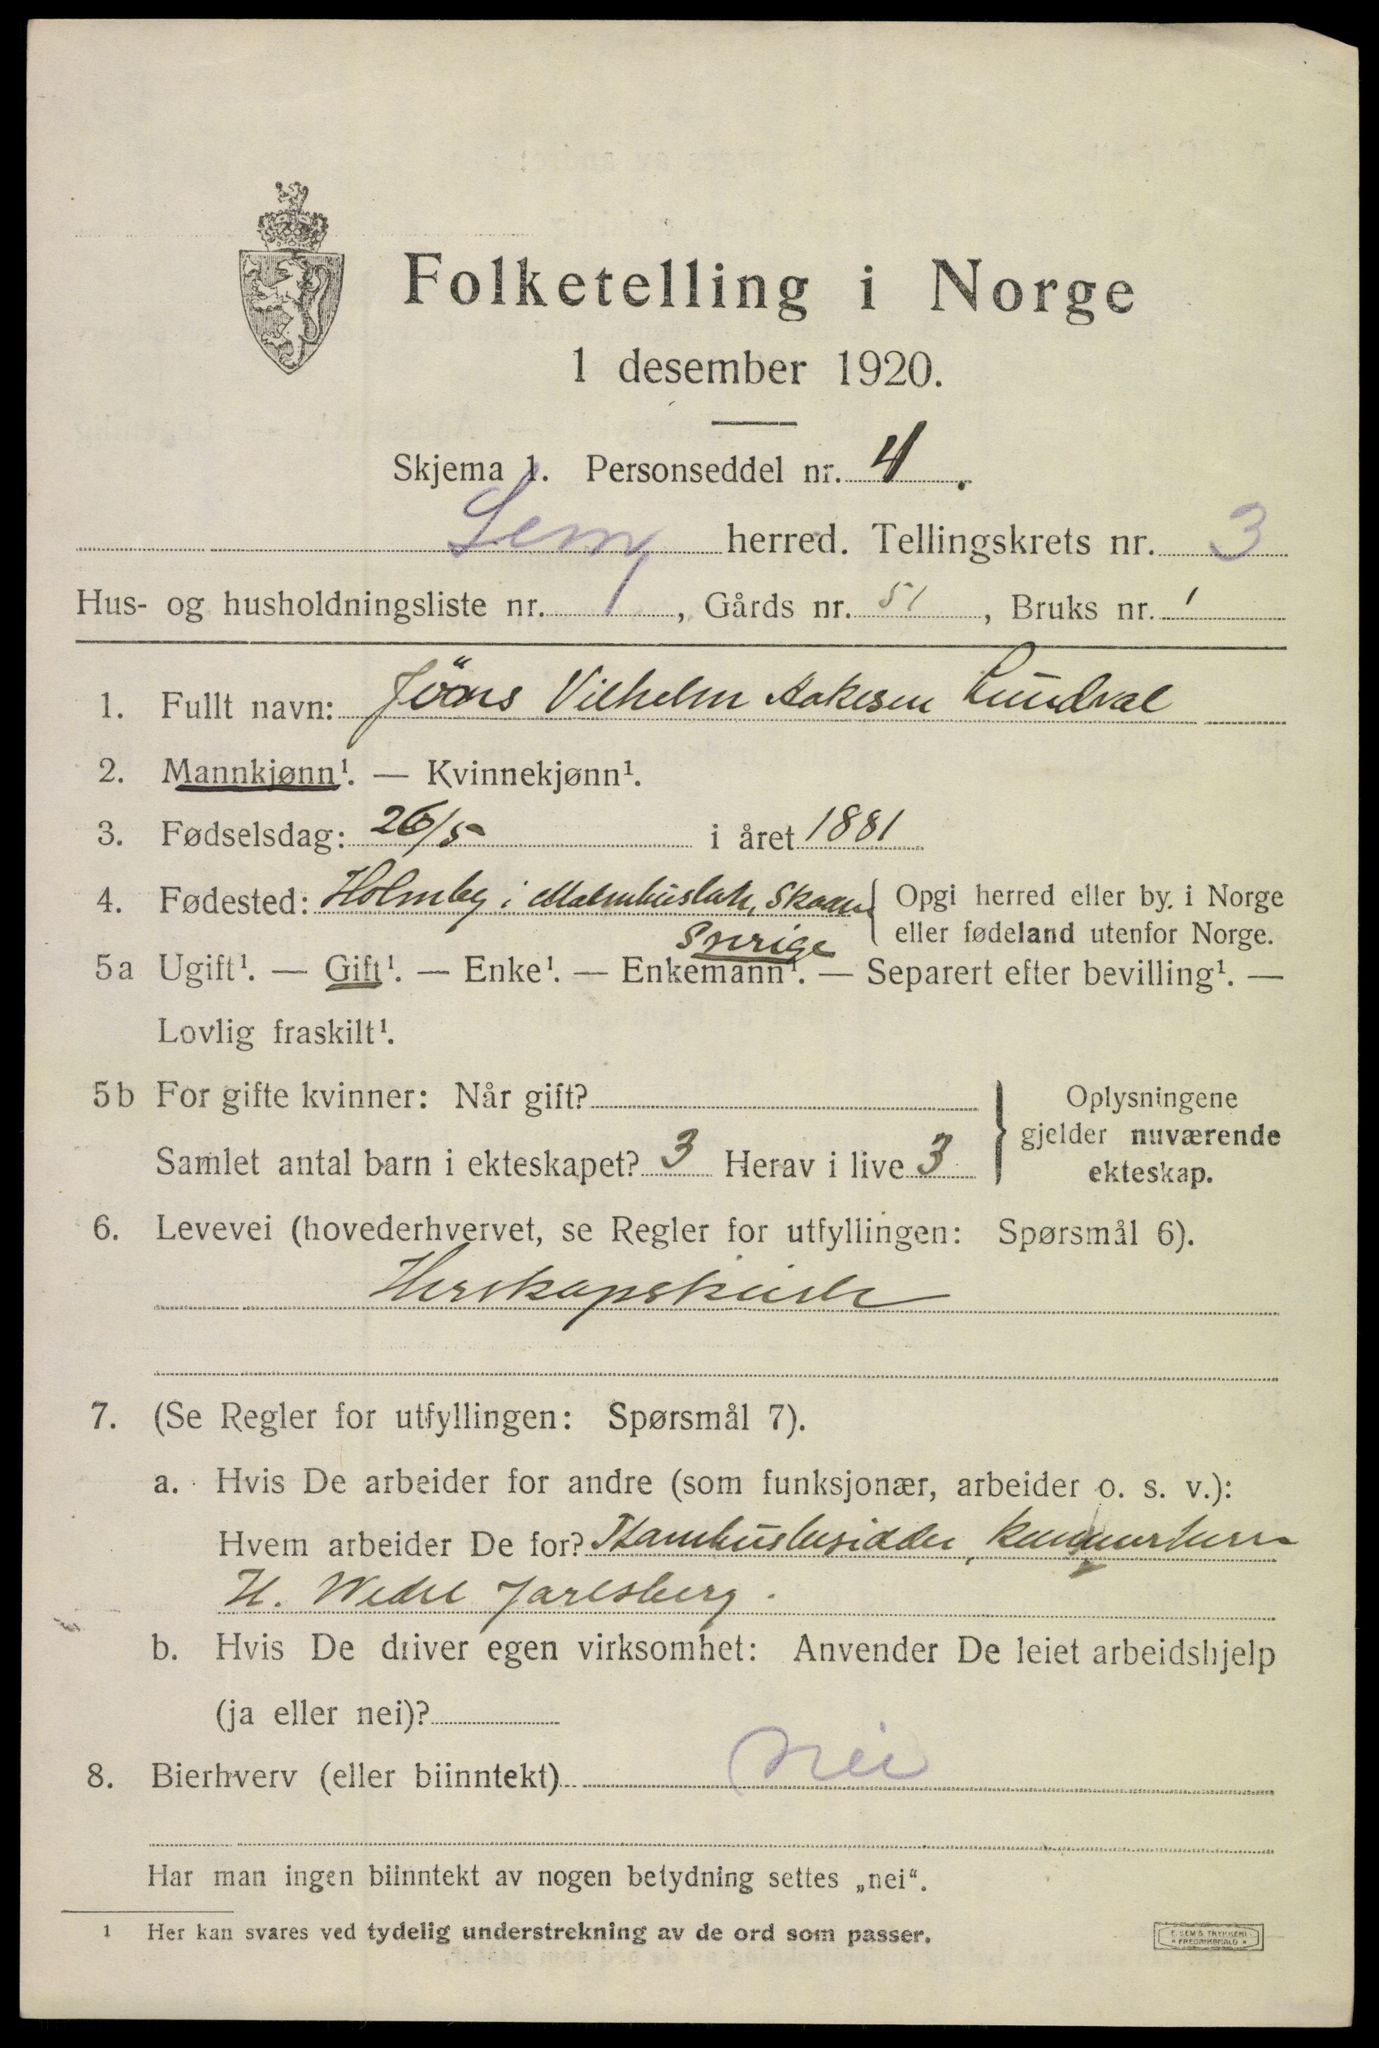 Folketelling i Norge
1 desember 1920.
Skjema 1. Personseddel nr. 4.
Sem herred. Tellingskrets nr. 3
Hus- og husholdningsliste nr. 1, Gårds nr. 51, Bruks nr. 1
1. Fullt navn: Jöns Vilhelm Aakesen Lundval
2. Mannkjønn¹. — Kvinnekjønn¹.
3. Fødselsdag: 26/5 i året 1881
4. Fødested: Holmby i Malmhuslän, Skaane { Opgi herred eller by, i Norge
Sverige eller fødeland utenfor Norge.
5a Ugift¹. — Gift¹. — Enke¹. — Enkemann¹. — Separert efter bevilling¹. —
Lovlig fraskilt¹.
5b For gifte kvinner: Når gift? } Oplysningene
gjelder nuværende
Samlet antal barn i ekteskapet? 3 Herav i live 3 ekteskap.
6. Levevei (hovederhvervet, se Regler for utfyllingen: Spørsmål 6).
Herskapskusk
7. (Se Regler for utfyllingen: Spørsmål 7).
a. Hvis De arbeider for andre (som funksjonær, arbeider o. s. v.):
Hvem arbeider De for? Stamhusbesidder, kammerherre
H. Wedel Jarlsberg.
b. Hvis De driver egen virksomhet: Anvender De leiet arbeidshjelp
(ja eller nei)?
8. Bierhverv (eller biinntekt) nei
Har man ingen biinntekt av nogen betydning settes „nei“.
¹ Her kan svares ved tydelig understrekning av de ord som passer.
E. SEM'S TRYKKERI
FREDRIKSHALD